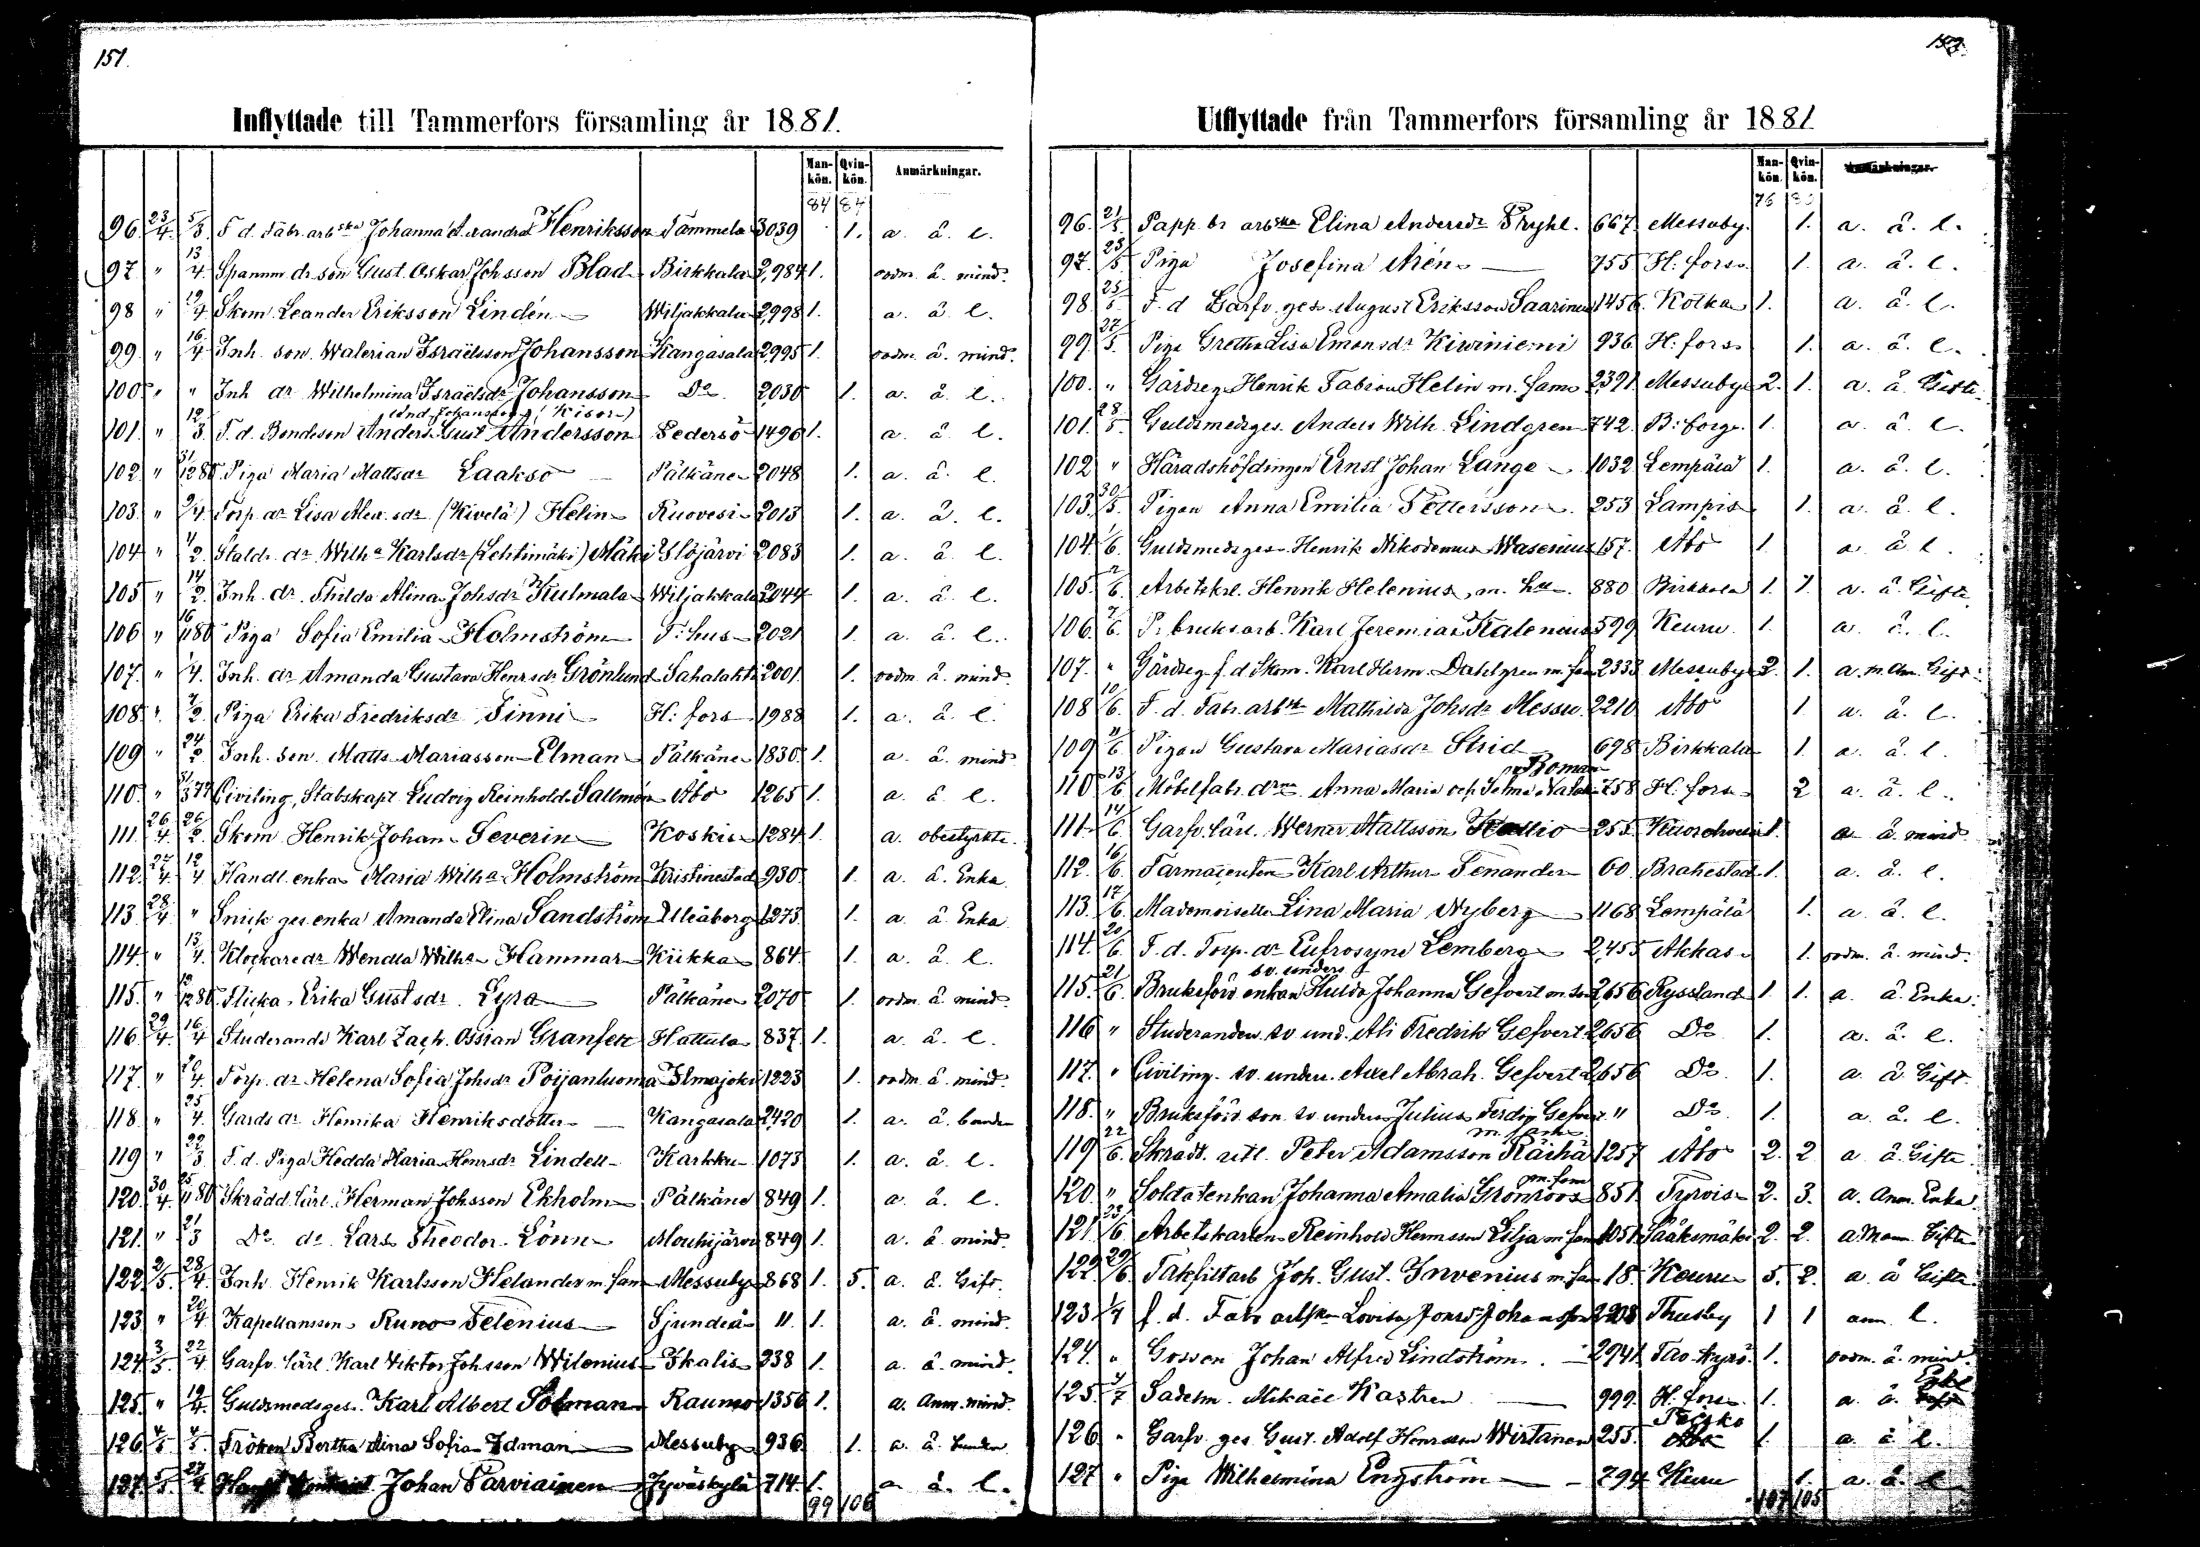 151.
Inflyttade till Tammerfors församling år 1881.
Mankön. Qvinkön. Anmärkningar.
84 84
96. 23/4. 5/3. F. d. Fabr. arbska Johanna Alexandra Henriksson Tammela 3039 1. a. å. l.
97 " 13/4. Spannm. dr. son Gust. Oskar Johsson Blad Birkkala 2,984 1. oadm. å. mind.
98 " 19/4 Skom. Leander Eriksson Lindén Wiljakkala 2,998 1. a. å. l.
99. " 16/4 Inh. son Walerian Israëlsson Johansson Kangasala 2,995 1. oadm. å. mind.
100. " " Inh. dr Wilhelmina Israëlsdr Johansson Do 2,030 1. a. å. l.
101. " 12/3. F. d. Bondeson Anders Gust. Andersson Pedersö 1496 1. a. å. l.
102. " 31/12 80. Piga Maria Mattsdr Laakso Pälkäne 2048 1. a. å. l.
103. " 2/4. Torp. dr Lisa Alex. sdr (Kivelä) Helin Ruovesi 2013 1. a. å. l.
104 " 4/2. Staldr. dr Wilha Karlsdr (Lehtimäki) Mäki Ylöjärvi 2083 1. a. å. l.
105 " 14/2. Inh. dr. Thilda Alina Johsdr Kulmala Wiljakkala 2044 1. a. å. l.
106 " 16/11 80 Piga Sofia Emilia Holmström T:hus 2021 1. a. å. l.
107. " 1/4. Inh. dr Amanda Gustava Henrsdr Grönlund Sahalahti 2001. 1. oadm. å. mind.
108 " 7/2. Piga Erika Fredriksdr Finni H:fors 1988 1. a. å. l.
109 " 24/2. Inh. son Matts Mariasson Elman Pälkäne 1830. 1. a. å. mind.
110. " 31/3 79 Civiling., Stabskapt. Ludvig Reinhold Sallmén Åbo 1265 1. a. å. l.
111. 26/4. 26/2. Skom. Henrik Johan Severin Koskis 1284 1. a. obestyrkte.
112. 27/4. 12/4 Handl. enka Maria Wilha Holmström Kristinestad 930. 1. a. å. Enka
113. 28/4. " Snick. ges. enka Amanda Elina Sandström Uleåborg 1273 1. a. å. Enka
114. " 13/4. Klockaredr Wendla Wilha Hammar Kiikka 864. 1. a. å. l.
115. " 19/12 80. Flicka Erika Gustsdr Lyra Pälkäne 2070 1. oadm. å. mind.
116 29/4. 16/4 Studerande Karl Zach. Ossian Granfelt Hattula 837. 1. a. å. l.
117. " 20/4. Torp. dr Helena Sofia Johsdr Poijanluoma Ilmajoki 1223 1. oadm. å. mind.
118. " 25/4. Gårds dr Henrika Henriksdotter Kangasala 2,420 1. a. å. bunden
119 " 22/3 F. d. Piga Hedda Maria Henrsdr Lindell Karkku 1073 1. a. å. l.
120. 30/4. 25/11 80 Skrädd. lärl. Herman Johsson Ekholm Pälkäne 849 1. a. å. l.
121. " 21/3 Do do Lars Theodor Lönn Mouhijärvi 849 1. a. å. mind.
122. 2/5. 28/4. Inh. Henrik Karlsson Helander m. fam. Messuby 868 1. 5. a. å. Gift.
123 " 20/4 Kapellansson Runo Felenius Sjundeå 11. 1. a. å. mind.
124. 3/5. 22/4 Garfv. lärl. Karl Viktor Johsson Wilenius Ikalis 238 1. a. å. mind.
125. " 19/4. Guldsmedsges. Karl Albert Solman Raumo 1356 1. a. Anm. mind.
126. 4/5 4/5. Fröken Bertha Alina Sofia Idman Messuby 936. 1. a. å. bunden
127. 5/5. 27/4. Johan Parviainen Jyväskylä 714 1. a. å. l.
99 106
Utflyttade från Tammerfors församling år 1881
Mankön. Qvinkön. Anmärkningar.
76
96. 21/5. Papp. br. arbska Elina Andersdr Thyhl. 667. Messuby. 1. a. å. l.
97. 23/5. Piga Josefina Arén 755 H:fors 1. a. å. l.
98. 25/5 F. d. Garfv. ges. August Eriksson Saarinen 1456. Kotka 1. a. å. l.
99. 27/5. Piga Gretha Lisa Emansdr Kiviniemi 936 H:fors 1. a. å. l.
100. " Gårdseg. Henrik Fabian Helin m. fam. 2,391. Messuby 2. 1. a. å. Gifte.
101. 28/5. Guldsmedsges. Anders Wilh. Lindgren 742. B:borg. 1. a. å. l.
102 " Häradshöfdingen Ernst Johan Lange 1032 Lempälä 1. a. å. l.
103. 30/5. Pigan Anna Emilia Pettersson 253 Lampis 1. a. å. l.
104. 1/6. Guldsmedsges. Henrik Nikodemus Wasenius 157. Åbo 1. a. å. l.
105. 2/6. Arbetskrl. Henrik Helenius m. hu. 880 Birkkala 1. 1. a. å. Gifte.
106. 7/6. P. bruksarb. Karl Jeremias Kalenius 599 Keuru. 1. a. å. l.
107. " Gårdseg. f. d. Skom. Karl Herm. Dahlgren m. fam. 2333 Messuby 2. 1. a. m. Anm. Gift.
108 10/6. F. d. Fabr. arbsk. Mathilda Johsdr Messu 2210 Åbo 1 a. å. l.
109 11/6 Pigan Gustava Mariasdr Strid 698 Birkkala 1. a. å. l.
Boman
110 13/6 Möbelfabr. drna Anna Maria och Selma Natalia 758 H:fors 2 a. å. l.
111. 14/6 Garfv. lärl. Werner Mattsson Kallio 255. Kuorehvesi 1. a. å. mind.
112. 16/6. Farmaceuten Karl Arthur Fenander 60. Brahestad 1. a. å. l.
113. 17/6. Mademoiselle Lina Maria Nyberg 1168 Lempälä 1. a. å. l.
114. 20/6. F. d. Torp. dr Eufrosyne Lemberg 2,455 Akkas 1. oadm. å. mind.
sv. unders
115. 21/6. Bruksförv. enkan Hulda Johanna Gefvert m. son 2656 Ryssland 1. 1. a. å. Enka.
116 " Studeranden sv. und. Ali Fredrik Gefvert 2656 Do 1. a. å. l.
117. " Civiling. sv. unders. Axel Abrah. Gefvert 2,656 Do 1. a. å. Gift.
118. " Bruksförv. son sv. unders. Julius Ferdin. Gefvert " Do 1. a. å. l.
119 22/6. Skrädd. Peter Adamsson Räihä 1257 Åbo 2. 2 a. å. Gifte.
m. fam
120. " Soldatenkan Johanna Amalia Grönroos 851 Tyrvis 2. 3. a. Anm. Enka.
121 23/6. Arbetskarlen Reinhold Hermsson Lilja m. fam. 1051 Sääksmäki 2. 2. a. Anm. Gifte
122 29/6 Takfiltarb. Joh. Gust. Invenius m. fam. 18. Keuru 5. 2. a. å. Gifte.
123 1/7 f. d. Fabr. arbska Lovisa Jonsdr Johansson 2908 Thusby 1 1 anm. l.
124. " Gossen Johan Alfred Lindström 2941 Tav. Kyrö. 1. oadm. å. mind.
125. 4/7 Sadelm. Mikael Kastren 999. H:fors 1. a. å.
Teisko
126 " Garfv. ges. Gust. Adolf Henrsson Wirtanen 255. Åbo 1. a. å. l.
127 " Piga Wilhelmina Engström 794 Kuru 1. a. å. l.
107 105